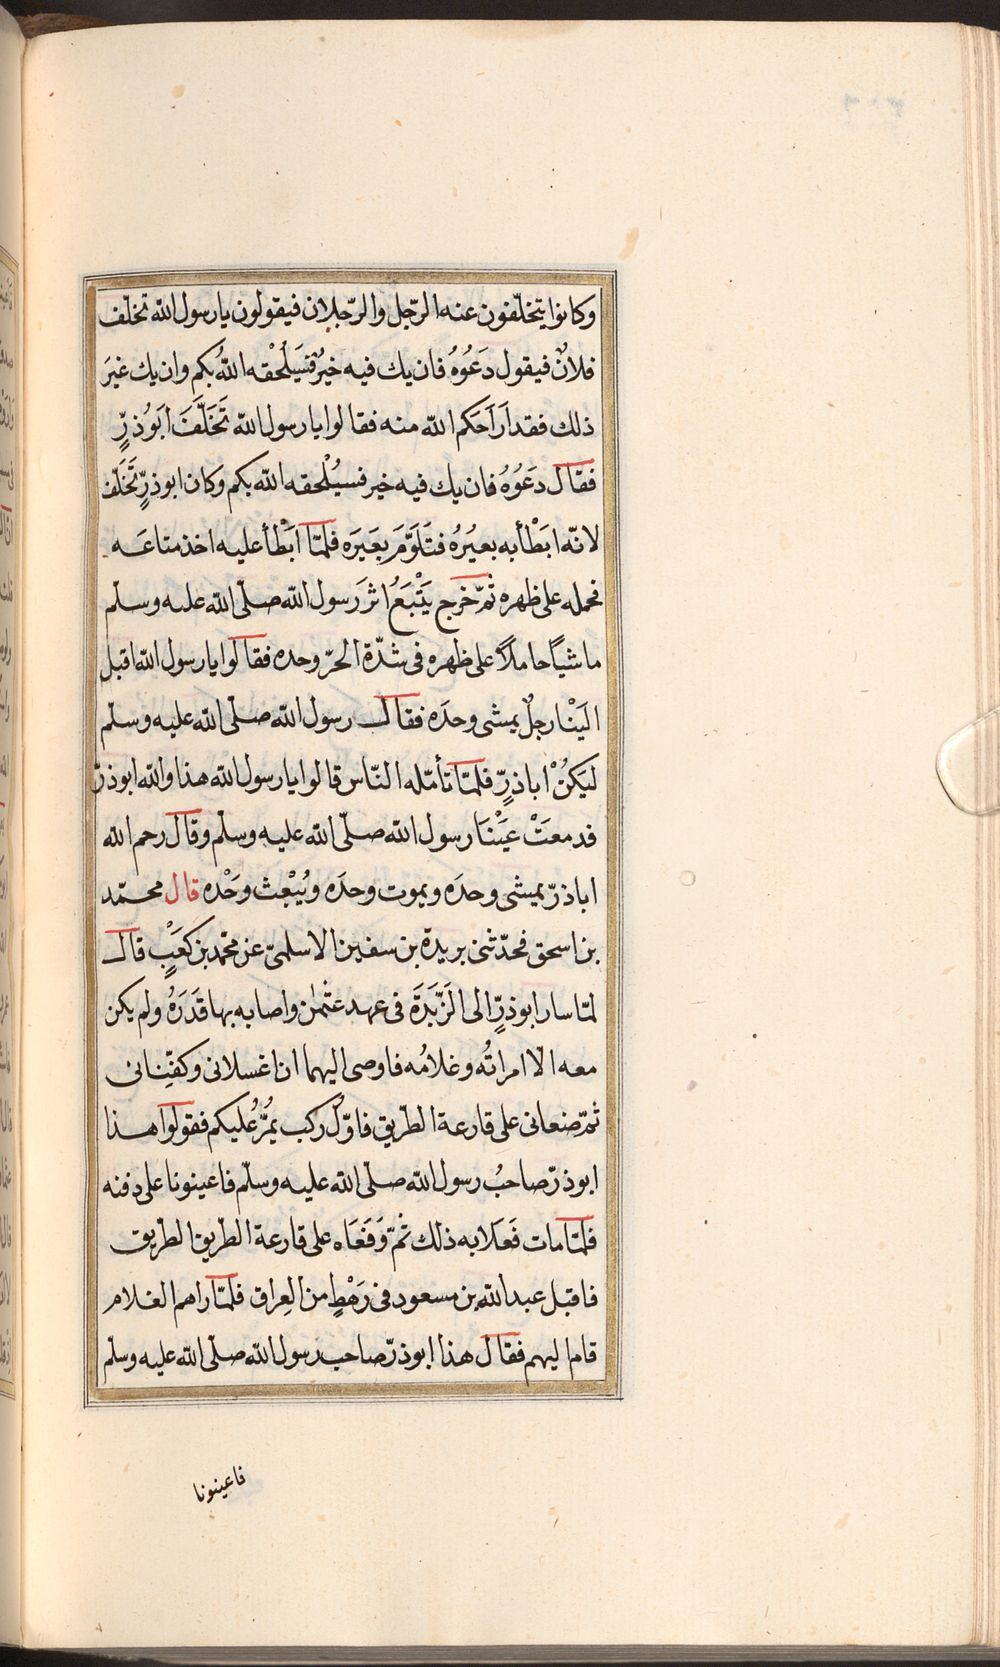 وكانوا يتخلّفون عنه الرّجل والرّجلان فيقولون يا رسول الله تخلّف
فلانٌ فيقول دَعُوُهُ فان يك فيه خيرٌ فَسَيُلْحقه اللّهُ بكم وان يك غيرَ
ذلك فقد اَرَاحَكم الله منه فقالوا يا رسول الله تَخَلَّفَ اَبُوذرٍّ
فقال دَعُوُهُ فان يك فيه خير فسيُلْحقه الله بكم وكان ابوذرٍّ تَخَلّف
لانّه ابَطْأ به بعيُرُه فتَلَوَّمَ بعَيَره فلمّا ابَطْأ عليه اخذ متاعَه
فحمله على ظهره ثمّ خرج يَتْبَعُ اثرَ رسول الله صلّى الله عليه وسلّم
ماشياً حاملاً على ظهره فى شدّة الحرّ وحده فقالوا يا رسول الله اقبل
الَيْنا رجلٌ يمشى وحدَه فقال رسول الله صلّى الله عليه وسلّم
لَيَكُنْ اباذرٍّ فلمّا تأمّله النّاس قالوا يا رسول الله هذا والله ابوذرّ
فدمعَتْ عَيْنَا رسول الله صلّى الله عليه وسلّم وقال رحم الله
اباذرّ يمشى وحدَه ويموت وحدَه ويُبْعث وحَدْه قال محمّد
بن اسحق فحدّثنى بريدة بن سفين الاسلمىّ عن محمد بن كعَبٍْ قال
لمّا سار ابوذرٍّ الى الَرَّبَذَة فى عهد عثْمٰن واصابه بها قَدَرَهُ ولم يكن
معه الّا امراتُه وغلامُه فاوصى اليهما ان اغسلانى وكفّنِانى
ثمّ ضعانى على قارعة الطّريق فاوّلُ ركب يمُرُّ عليكم فقولوا هذا
ابوذرّ صاحبُ رسول الله صلّى الله عليه وسلّم فاعينونا على دفنه
فلمّا مات فَعَلا به ذلك ثمّ وَقَعَاه على قارعة الطّريق الطّريق
فاقبل عبد اللّه بن مسعود فى رَهْطٍ من العِراق فلمّا راهم الغلام
قام اليهم فقال هذا ابوذرّ صاحب رسول الله صلّى الله عليه وسلّم
فاعينونا